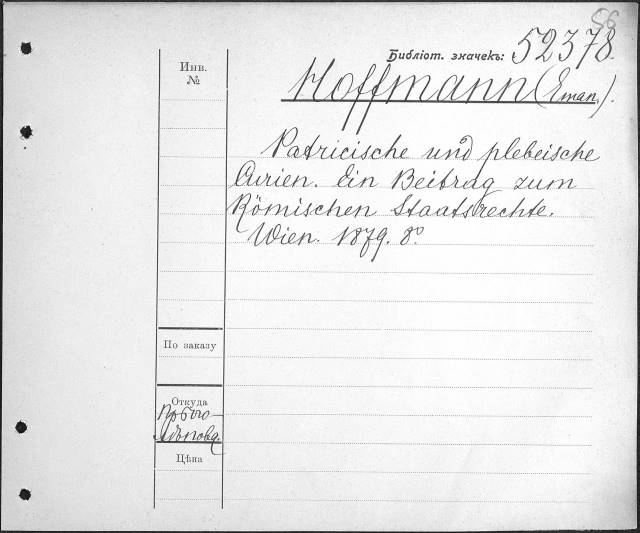 56
Библіот. значекъ: 52378.
Инв.
№
Hoffmann (Eman.).
Patricische und plebeische
Curien. Ein Beitrag zum
Römischen Staatsrechte.
Wien. 1879. 8°.
По заказу
Откуда
Цѣна